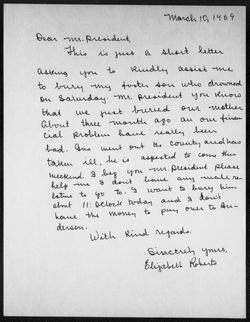 March 10, 1969
Dear Mr. President,
This is just a short letter
asking you to kindly assist me
to bury my foster son who drowned
on Saturday. Mr. President you know
that we just buried our mother
about three month ago an our finan
cial problem have really been
bad. One went out the county and has
taken ill, he is expected to come this
weekend. I beg you Mr President please
help me I don't have any male re
lative to go to. I want to bury him
about 11: Oclock today and I don't
have the money to pay over to An-
derson.
With kind regards.
Sincerely yours,
Elizabeth Roberts